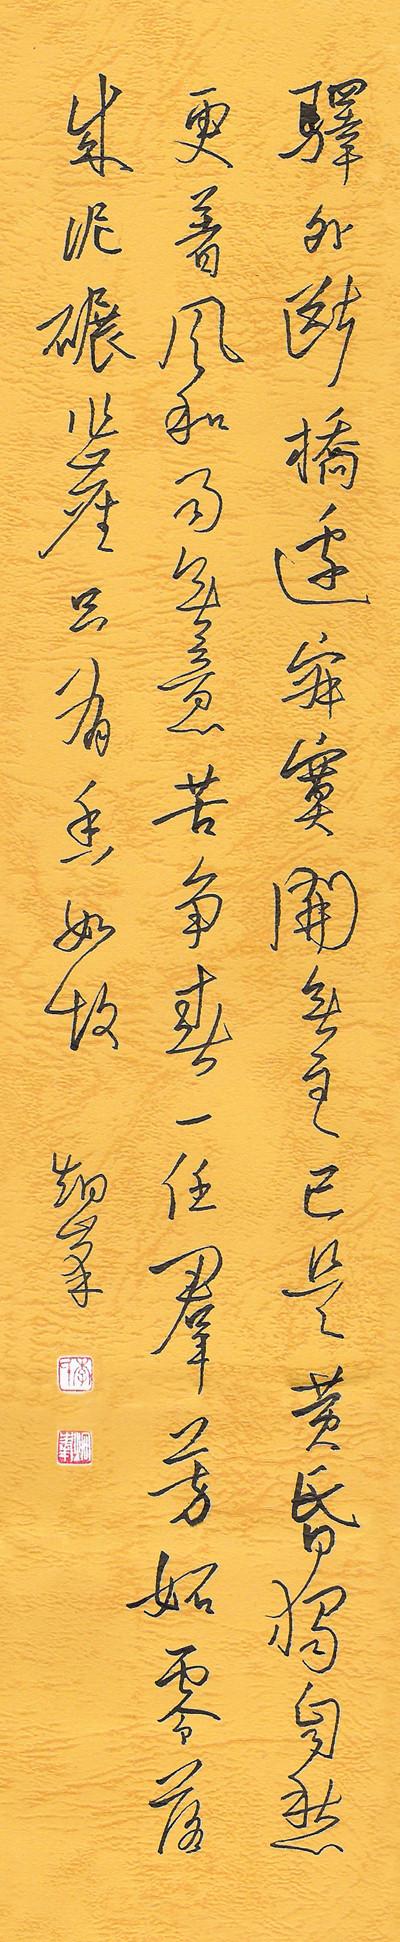 驛外斷橋邊寂寞開無主已是黄昏獨自愁
更著風和雨無意苦争春一任羣芳妬零落
成泥碾作塵只有香如故